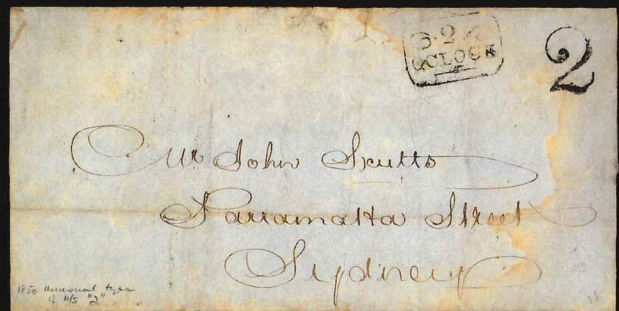 O'CLOCK
2
Mr John Scutts
Parramatta Street
Sydney
1850 unusual type
of H/S "2"